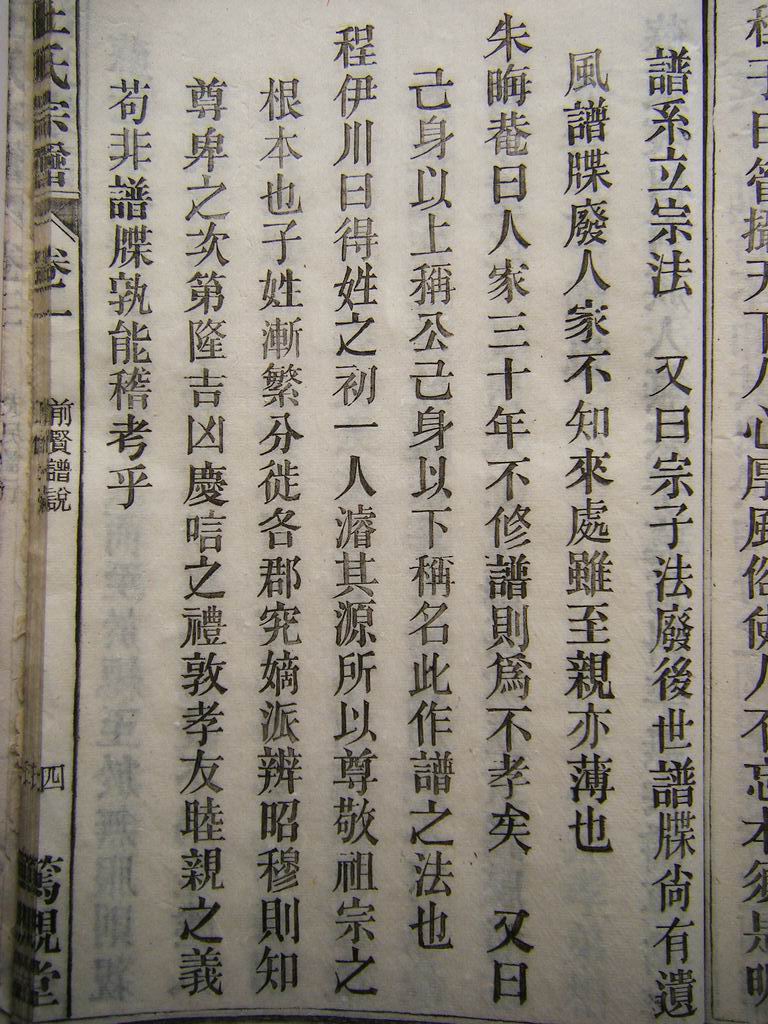 程子曰管攝天下人心厚風俗使人不忘本須是明
譜系立宗法　又曰宗子法廢後世譜牒尙有遺
風譜牒廢人家不知來處雖至親亦薄也
朱晦菴曰人家三十年不修譜則爲不孝矣　又曰
己身以上稱公己身以下稱名此作譜之法也
程伊川曰得姓之初一人濬其源所以尊敬祖宗之
根本也子姓漸繁分徙各郡究嫡派辨昭穆則知
尊卑之次第隆吉凶慶唁之禮敦孝友睦親之義
苟非譜牒孰能稽考乎
氏宗譜
卷一
前賢譜說
四
篤親堂